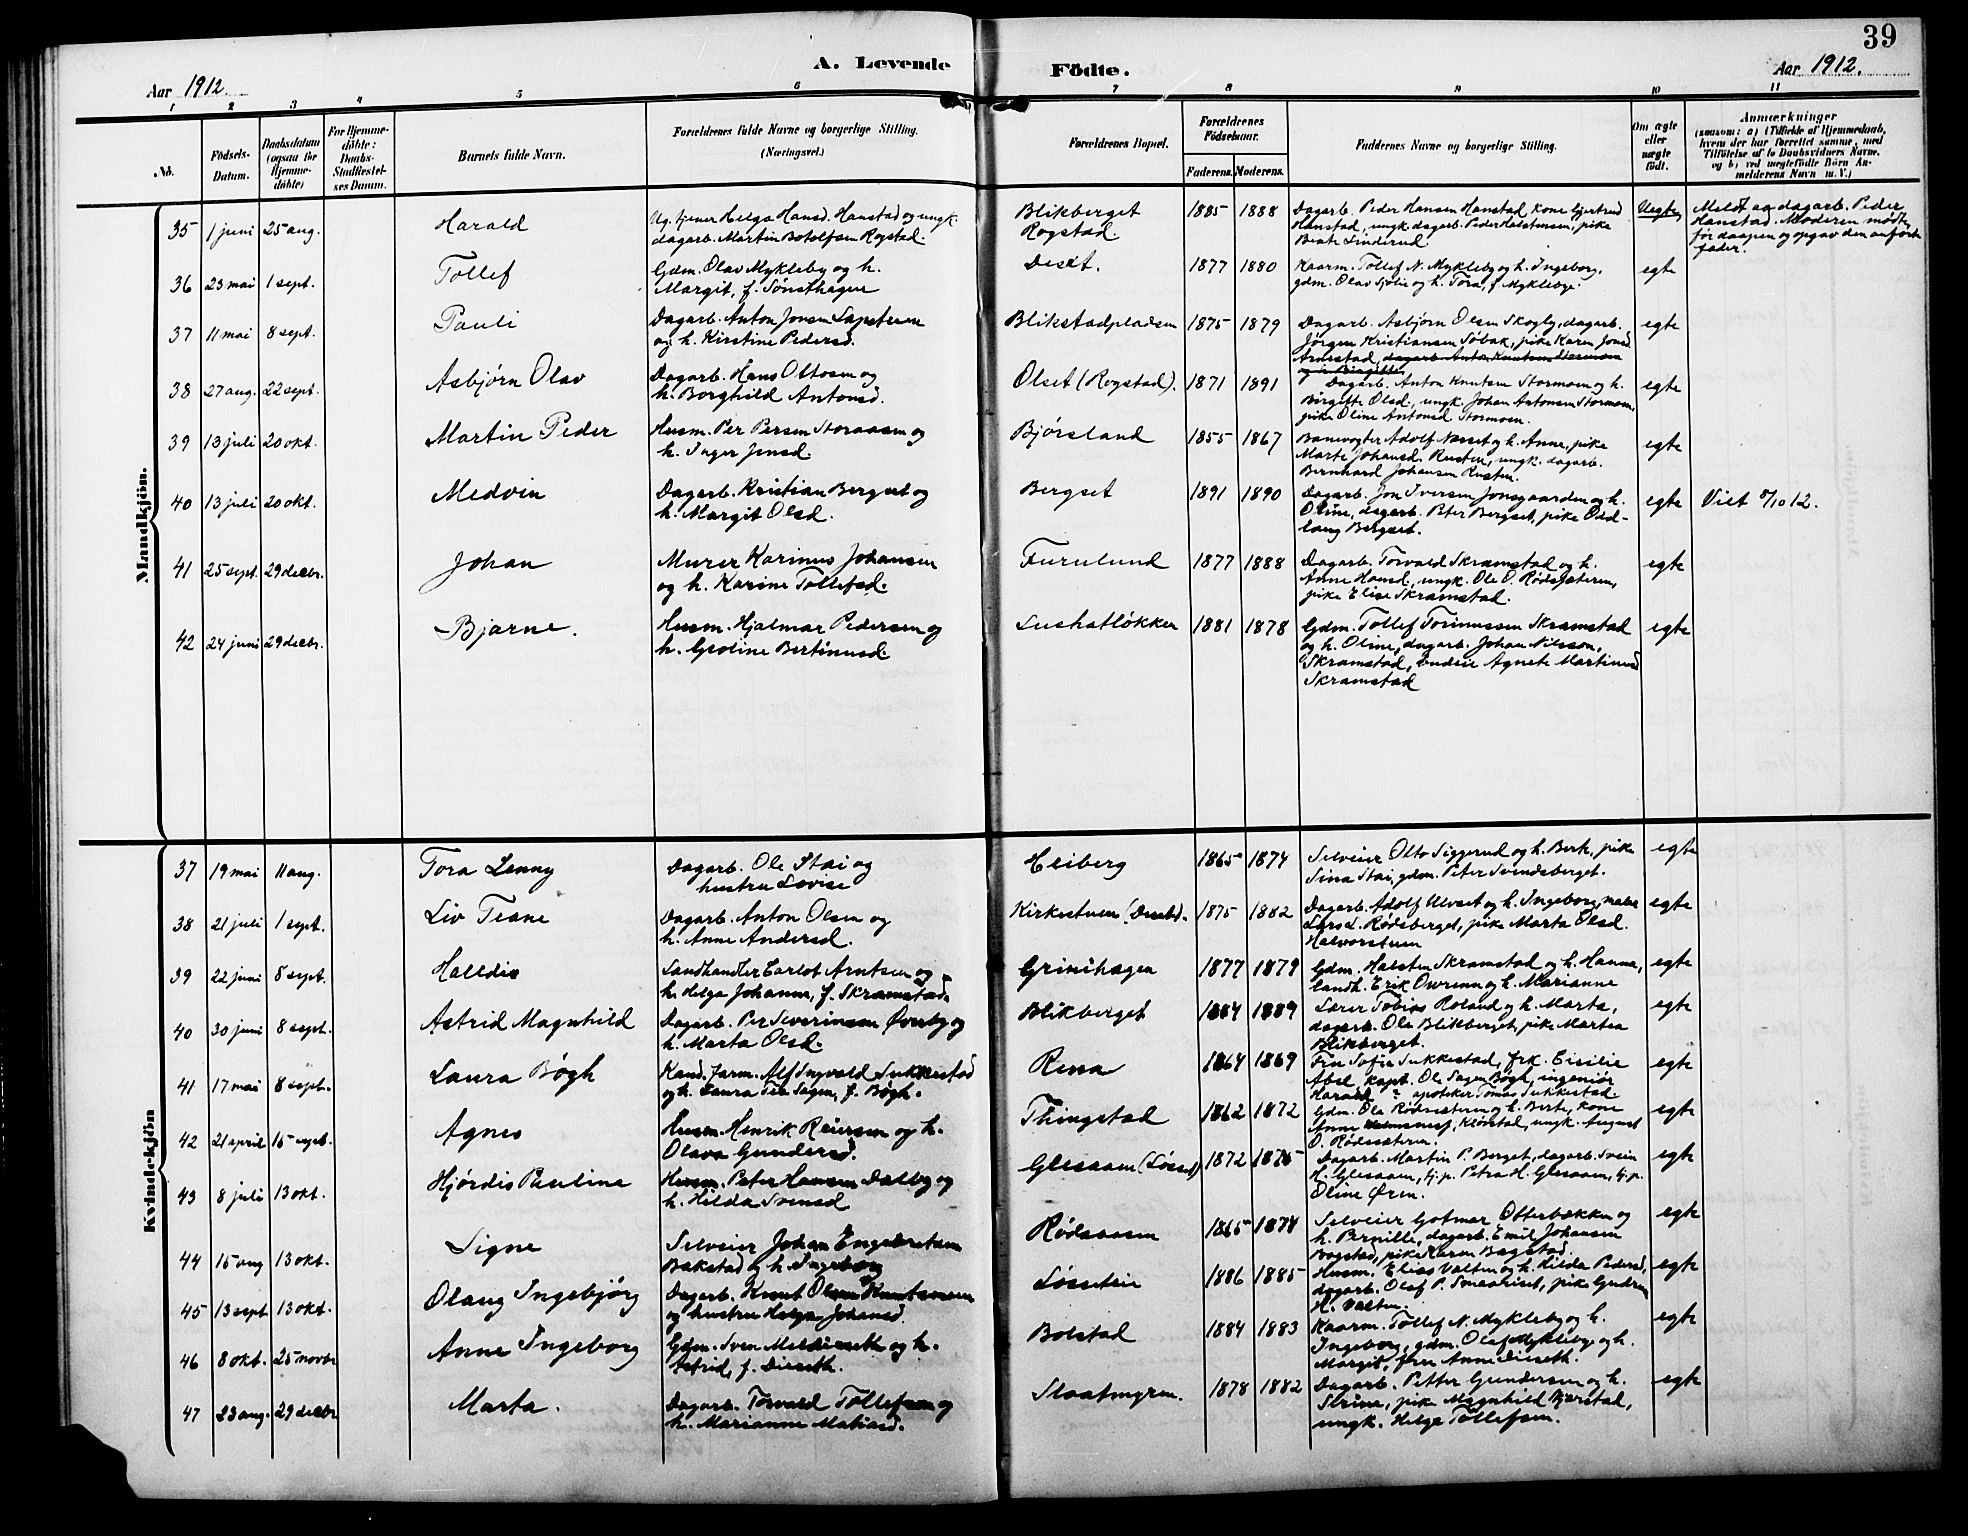 39
A. Levende Födte.
Aar 1912.
Aar 1912.
1 2 3 4 5 6 7 8 9 10 11
No.
Födsels-
Datum.
Daabsdatum
(ogsaa for
Hjemme-
døbte)
For Hjemme-
döbte:
Daabs-
Stadfæstel-
ses Datum.
Barnets fulde Navn.
Forældrenes fulde Navne og borgerlige Stilling.
(Næringsvei.)
Forældrenes Bopæl.
Forældrenes
Födselsaar.
Faderens. Moderens.
Faddernes Navne og borgerlige Stilling.
Om ægte
eller
uægte
födt.
Anmærkninger
(saasom: a) i Tilfælde af Hjemmedaab,
hvem der har forrettet samme, med
Tilföielse af to Daabsvidners Navne.
og b) ved uegtefödte Börn An-
melderens Navn m. V.)
Mandkjön.
35 1 juni 25 aug. Harald
Ug. tjener Helga Hansd. Hanstad og ungk.
dagarb. Martin Botolfsen Rogstad.
Blikberget
Rogstad.
1885 1888
Dagarb. Peder Hansen Hanstad kone Gjertrud
Hanstad, ungk. dagarb. Peder Halstensen, pike
Beate Linderud
Uegte
Meldt av dagarb. Peder
Hanstad. Moderen mödte
för daapen og opgav den anförte
fader.
36 23 mai 1 sept. Tollef
Gdm. Olav Mykleby og h.
Margit, f. Sønsthagen
Deset. 1877 1880
Kaarm. Tollef N. Mykleby og h. Ingeborg,
gdm. Olav Sjölie og h. Tora, f. Mykleby.
egte
37 11 mai 8 sept. Pauli
Dagarb. Anton Jonsen
og h. Kirstine Pedersd.
Blikstadpladsen 1875 1879
Dagarb. Asbjörn Olsen Skogly, dagarb.
Jörgen Kristiansen Söbak, pike Karen Jonsd.
Arnestad, dagarb. Anton Knutsen Stormoen
og h. Birgitte
egte
38 27 aug. 22 sept. Asbjørn Olav
Dagarb. Hans Ottosen og
h. Borghild Antonsd.
Olset (Rogstad). 1871 1891
Dagarb. Anton Knutsen Stormoen og h.
Birgitte Olsd., ungk. Johan Antonsen Stormoen,
pike Oline Antonsd. Stormoen.
egte
39 13 juli 20 okt. Martin Peder
Husm. Per Persen Storaasen og
h. Inger Jensd.
Bjørsland 1855 1867
Banevogter Adolf Næset og h. Anne, pike
Marte Johansd. Rusten, ungk. dagarb.
Bernhard Johansen Rusten.
egte
40 13 juli 20 okt. Medvin
Dagarb. Kristian Bergset og
h. Margit Olsd.
Bergset 1891 1890
Dagarb. Jon Iversen Jonsgaarden og h.
Oline, dagarb. Peter Bergset, pike Odd-
laug Bergset.
egte
Viet 5/10 12.
41 25 sept. 29 decbr. Johan
Murer Karinus Johansen
og h. Karine Tollefsd.
Furulund 1877 1888
Dagarb. Torvald Skramstad og h.
Anne Hansd., ungk. Ole O. Rødsæteren,
pike Elise Skramstad.
egte
42 24 juni 29 decbr. Bjarne.
Husm. Hjalmar Pedersen og
h. Gvoline Bertinusd.
Lushatløkken 1881 1878
Gdm. Tollef Torinussen Skramstad
og h. Oline, dagarb. Johan Nilsson,
Skramstad, budeie Agnete Martinusd
Skramstad
egte
Kvindekjön
37 19 mai 11 aug. Tora Jenny
Dagarb. Ole Stai og
hustru Lovise
Heiberg 1865 1874
Selveier Otto Siggerud og h. Berte, pike
Sina Stai, gdm. Peter Svendsberget.
egte
38 21 juli 1 sept. Liv Teane
Dagarb. Anton Olsen og
h. Anne Andersd.
Kirkestuen (Deset). 1875 1882
Dagarb. Adolf Ulvset og h. Ingeborg, maler
Lars L. Rødsberget, pike Marta Olsd.
Halvorstuen
egte
39 22 juni 8 sept. Halldis
Landhandler Carlot Arntsen og
h. Helga Johanne, f. Skramstad.
Grinihagen 1877 1879
Gdm. Halsten Skramstad og h. Hanna,
landh. Erik Owrenn og h. Marianne
egte
40 30 juni 8 sept. Astrid Magnhild
Dagarb. Per Severinsen Øvreby og
h. Marta Olsd.
Blikberget 1884 1889
Lærer Tobias Roland og h. Marta,
dagarb. Ole Blikberget, pike Martea
Blikberget.
egte
41 17 mai 8 sept. Laura Bøgh
Kand. farm. Alf Ingvald Sukkestad
og h. Laura Tea Sagen, f. Bøgh.
Rena 1864 1869
Fru Sofie Sukkestad, frk. Cisilie
Abel kapt. Ole Sagen Bøgh, ingeniör
Harald " apoteker Tomas Sukkestad.
egte
42 21 april 15 sept. Agnes
Husm Henrik Reiersen og h.
Olava Gundersd.
Thingstad 1862 1872
Gdm. Ole Rødsæteren og h. Berte, kone
Anne Kiønstad, ungk. August
O. Rødsæteren.
egte
43 8 juli 13 okt. Hjørdis Pauline
Husm. Peter Hansen Dalby og
h. Hilda Svensd
Glesaaen (Løsset) 1872 1875
Dagarb. Martin P. Berget, dagarb. Svein
H. Glesaaen, tj.p. Petra H. Glesaaen, tj.p.
Oline Ørn.
egte
44 15 aug 13 okt. Signe
Selveier Johan Engebretsen
Bakstad og h. Ingeborg
Rødsaasen 1865 1874
Selveier Gotmar Otterbækken og
h. Pernille, dagarb. Emil Johansen
Bogstad, pike Karen Bagstad.
egte
45 13 sept 13 okt. Olaug Ingebjørg
Dagarb. Knut Olsen Knutsmoen
og hustru Helga Johansd.
Løsseteie 1886 1885
Husm. Elias Valten og h. Hilda Pedersd,
dagarb. Olaf P. Smaariset, pike Gudrun
H. Valten.
egte
46 8 okt. 25 novbr Anne Ingeborg
Gdm. Sven Meldieseth og h.
Astrid, f. Dieseth.
Bolstad 1884 1883
Kaarm. Tollef N. Mykleby og h.
Ingeborg, gdm. Olaf Mykleby og h.
Margit, frk Anne Dieseth.
egte
47 23 aug. 29 decbr Marta.
Dagarb. Torvald Tollefsen og
h. Marianne Matiasd.
Slaatmyren. 1878 1882
Dagarb. Petter Gundersen og h.
Strine, pike Magnhild Bjørstad,
ungk. Helge Tollefsen.
egte